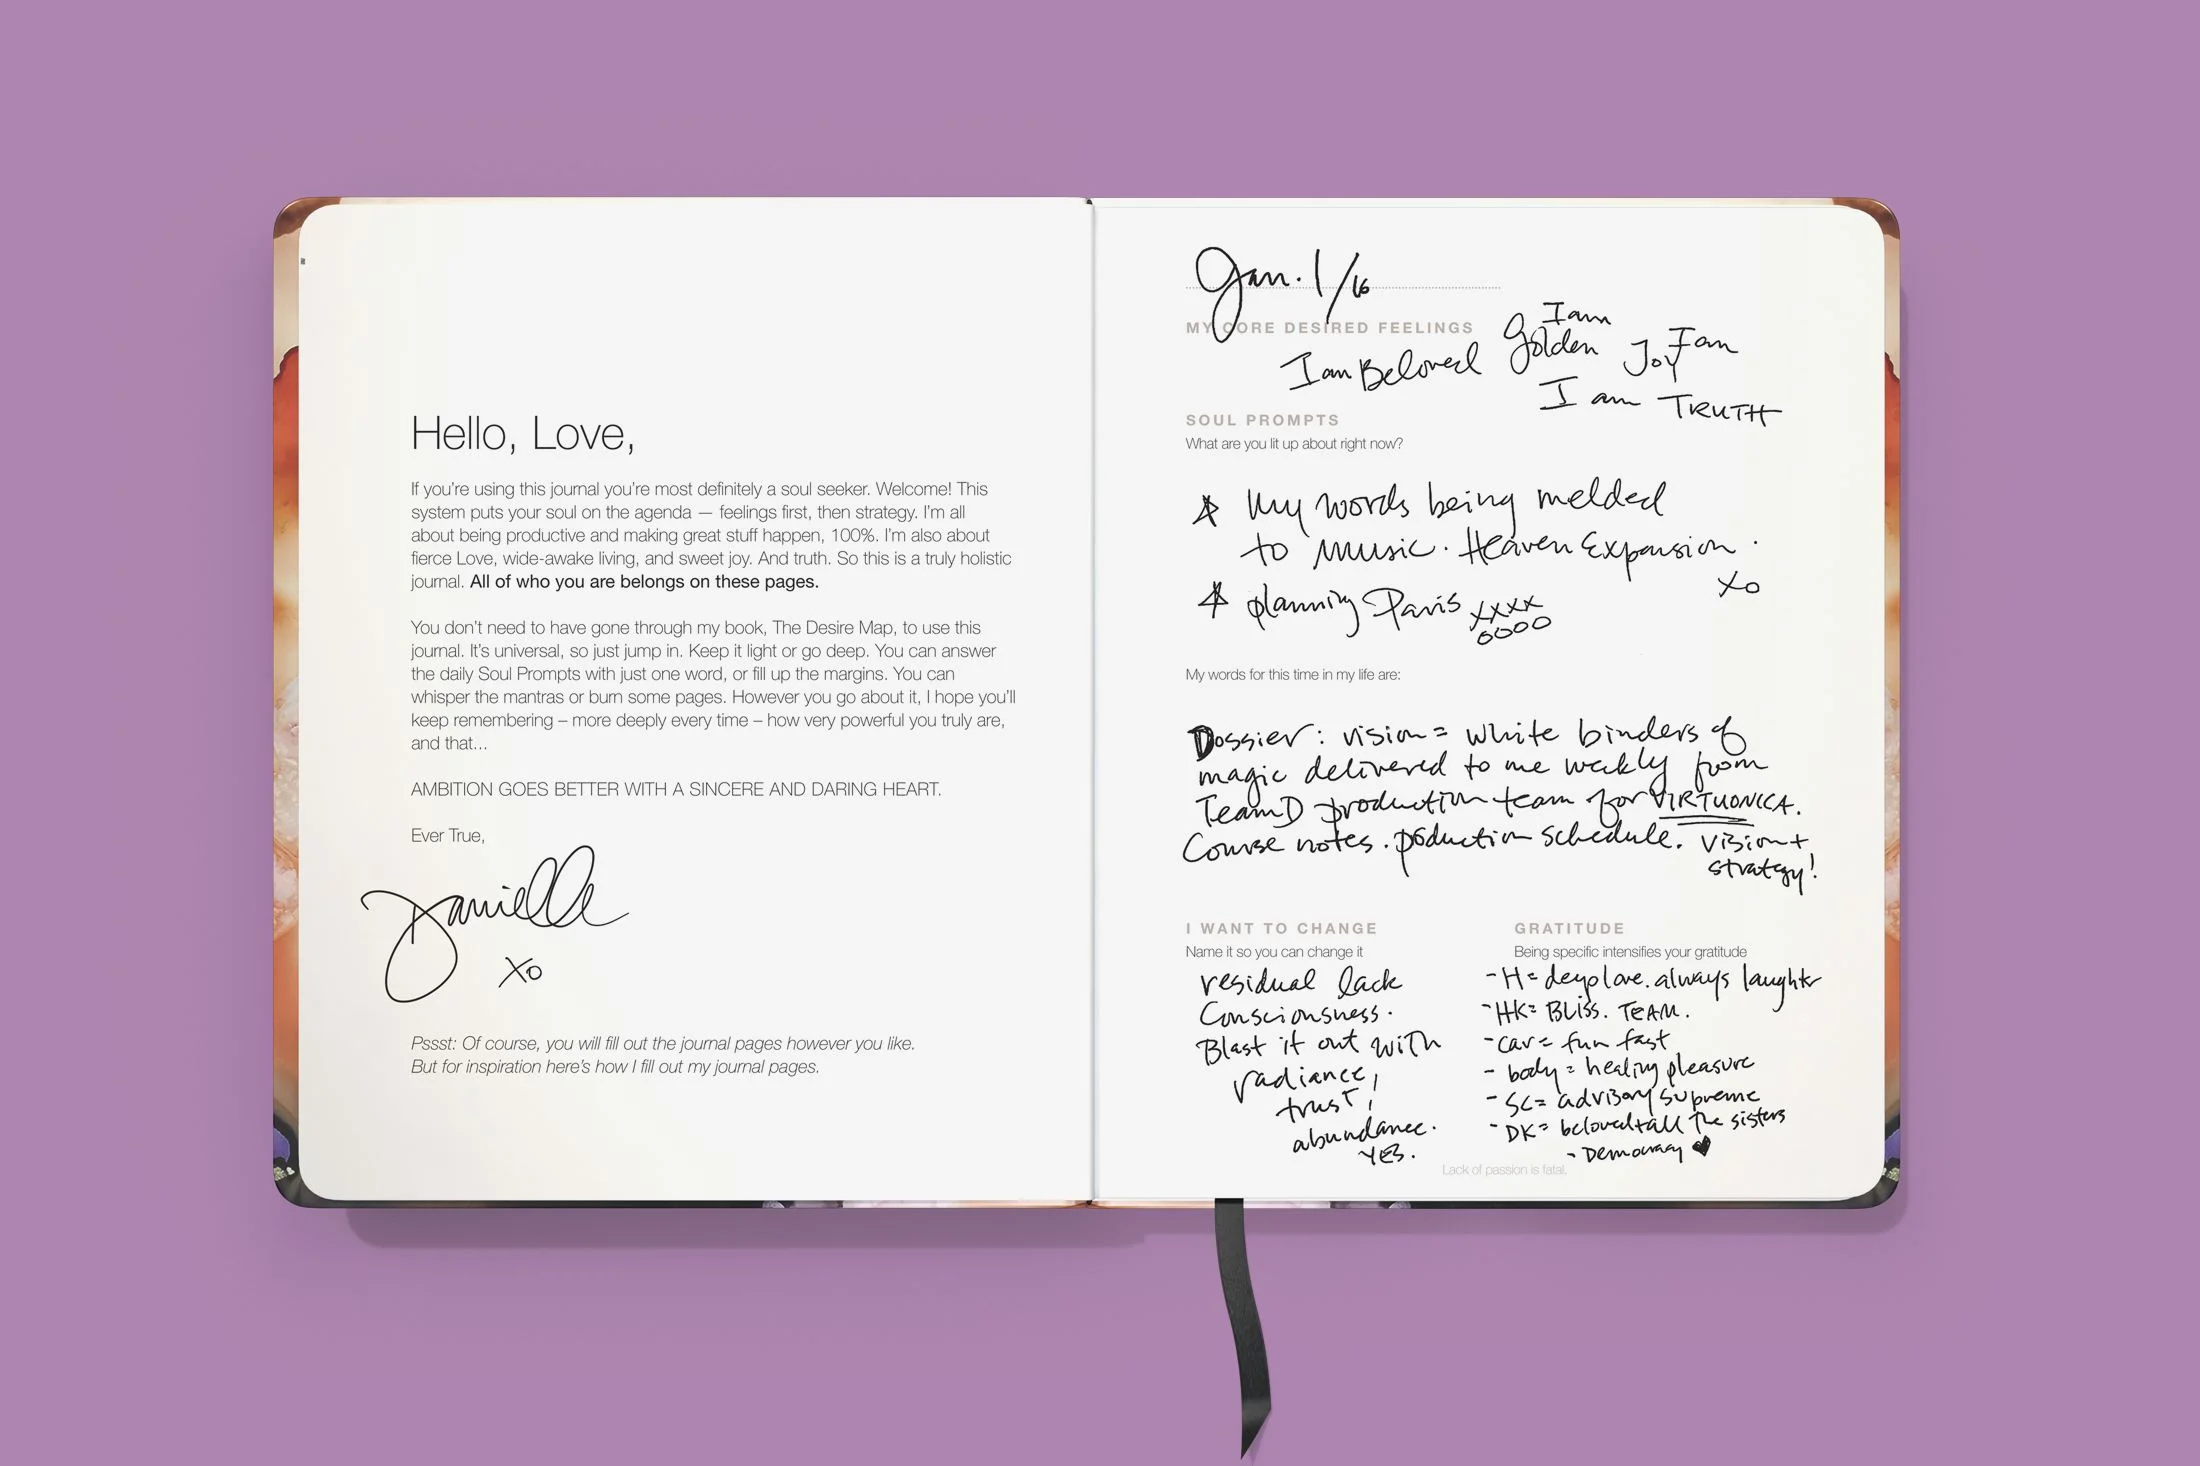 Hello, Love,
If you're using this journal you're most definitely a soul seeker. Welcome! This
system puts your soul on the agenda — feelings first, then strategy. I'm all
about being productive and making great stuff happen, 100%. I'm also about
fierce Love, wide-awake living, and sweet joy. And truth. So this is a truly holistic
journal. All of who you are belongs on these pages.
You don't need to have gone through my book, The Desire Map, to use this
journal. It's universal, so just jump in. Keep it light or go deep. You can answer
the daily Soul Prompts with just one word, or fill up the margins. You can
whisper the mantras or burn some pages. However you go about it, I hope you'll
keep remembering – more deeply every time – how very powerful you truly are,
and that...
AMBITION GOES BETTER WITH A SINCERE AND DARING HEART.
Ever True,
Danielle
xo
Pssst: Of course, you will fill out the journal pages however you like.
But for inspiration here's how I fill out my journal pages.
Jan. 1/16
MY CORE DESIRED FEELINGS
I am Beloved
I am
Golden
I am
Joy
I am TRUTH
SOUL PROMPTS
What are you lit up about right now?
My words being melded
to music. Heaven Expansion.
xo
planning Paris xxxx
oooo
My words for this time in my life are:
Dossier: vision = white binders of
magic delivered to me weekly from
TeamD production team for VIRTUONICA.
Course notes. production schedule. vision +
strategy!
I WANT TO CHANGE
Name it so you can change it
residual lack
Consciousness.
Blast it out with
radiance,
trust,
abundance.
YES.
GRATITUDE
Being specific intensifies your gratitude
- H = deep love. always laughter
- HK = BLISS. TEAM.
- car = fun fast
- body = healing pleasure
- SC = advisory supreme
- DK = beloved + all the sisters
- Democracy ♥
Lack of passion is fatal.